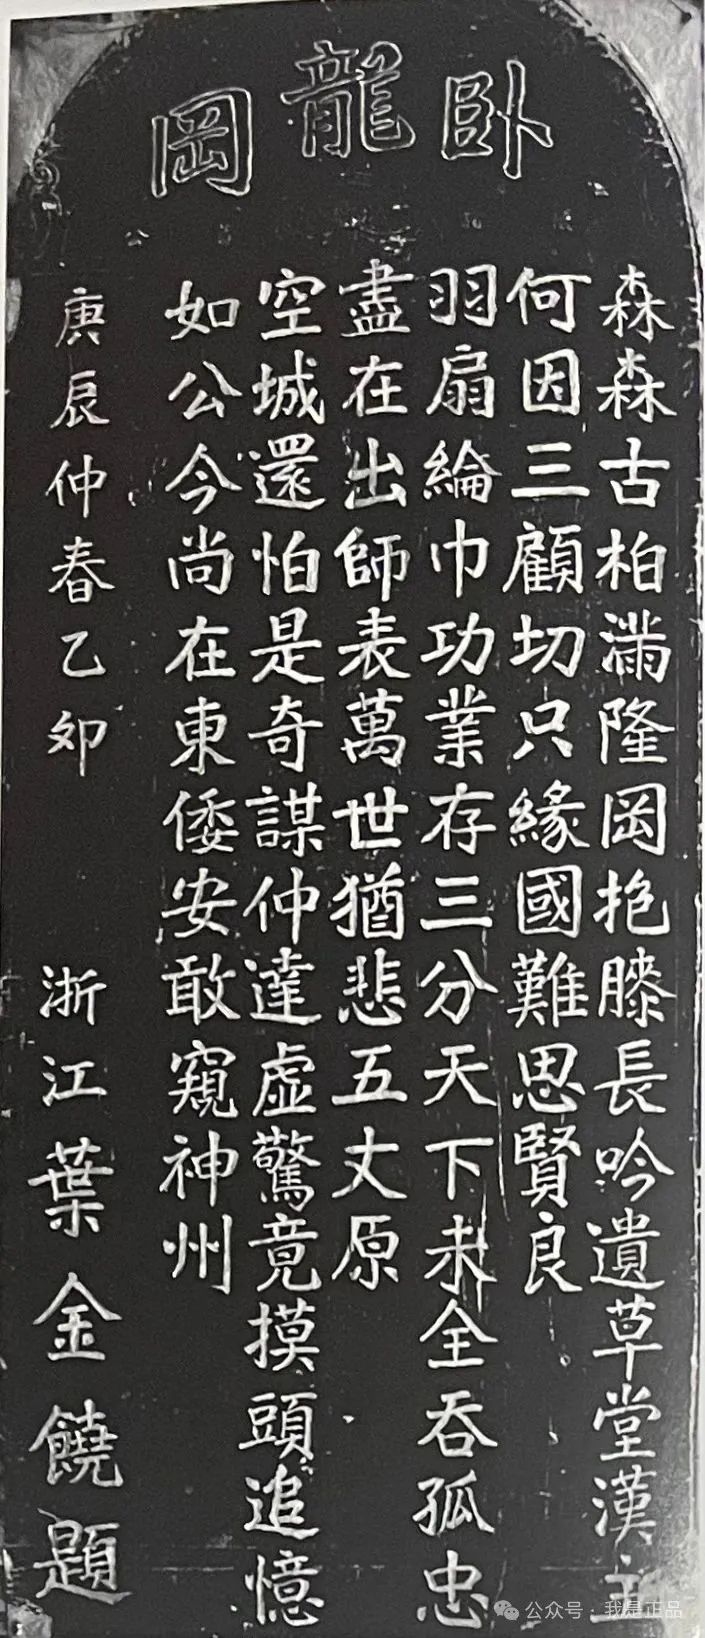 卧龍岡
森森古柏滿隆岡抱膝長吟遺草堂漢主
何因三顧切只緣國難思賢良
羽扇綸巾功業存三分天下未全吞孤忠
盡在出師表萬世猶悲五丈原
空城還怕是奇謀仲達虛驚竟摸頭追憶
如公今尚在東倭安敢窺神州
庚辰仲春乙夘
浙江葉金饒題
公众号：我是正品